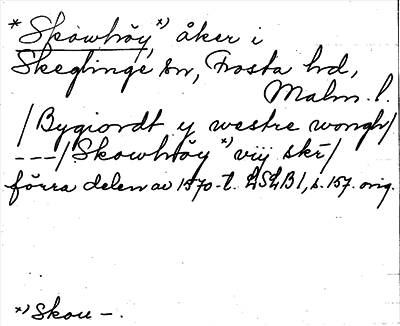 * Skowhöy,*) åker i
Skeglinge sn, Frosta hd,
Malm. l.
/Bygiordt y westre wongh/
---/Skowhöy *) viij skr/
förra delen av 1570-t. LSLB1, s. 157. orig.
*) Skou -.